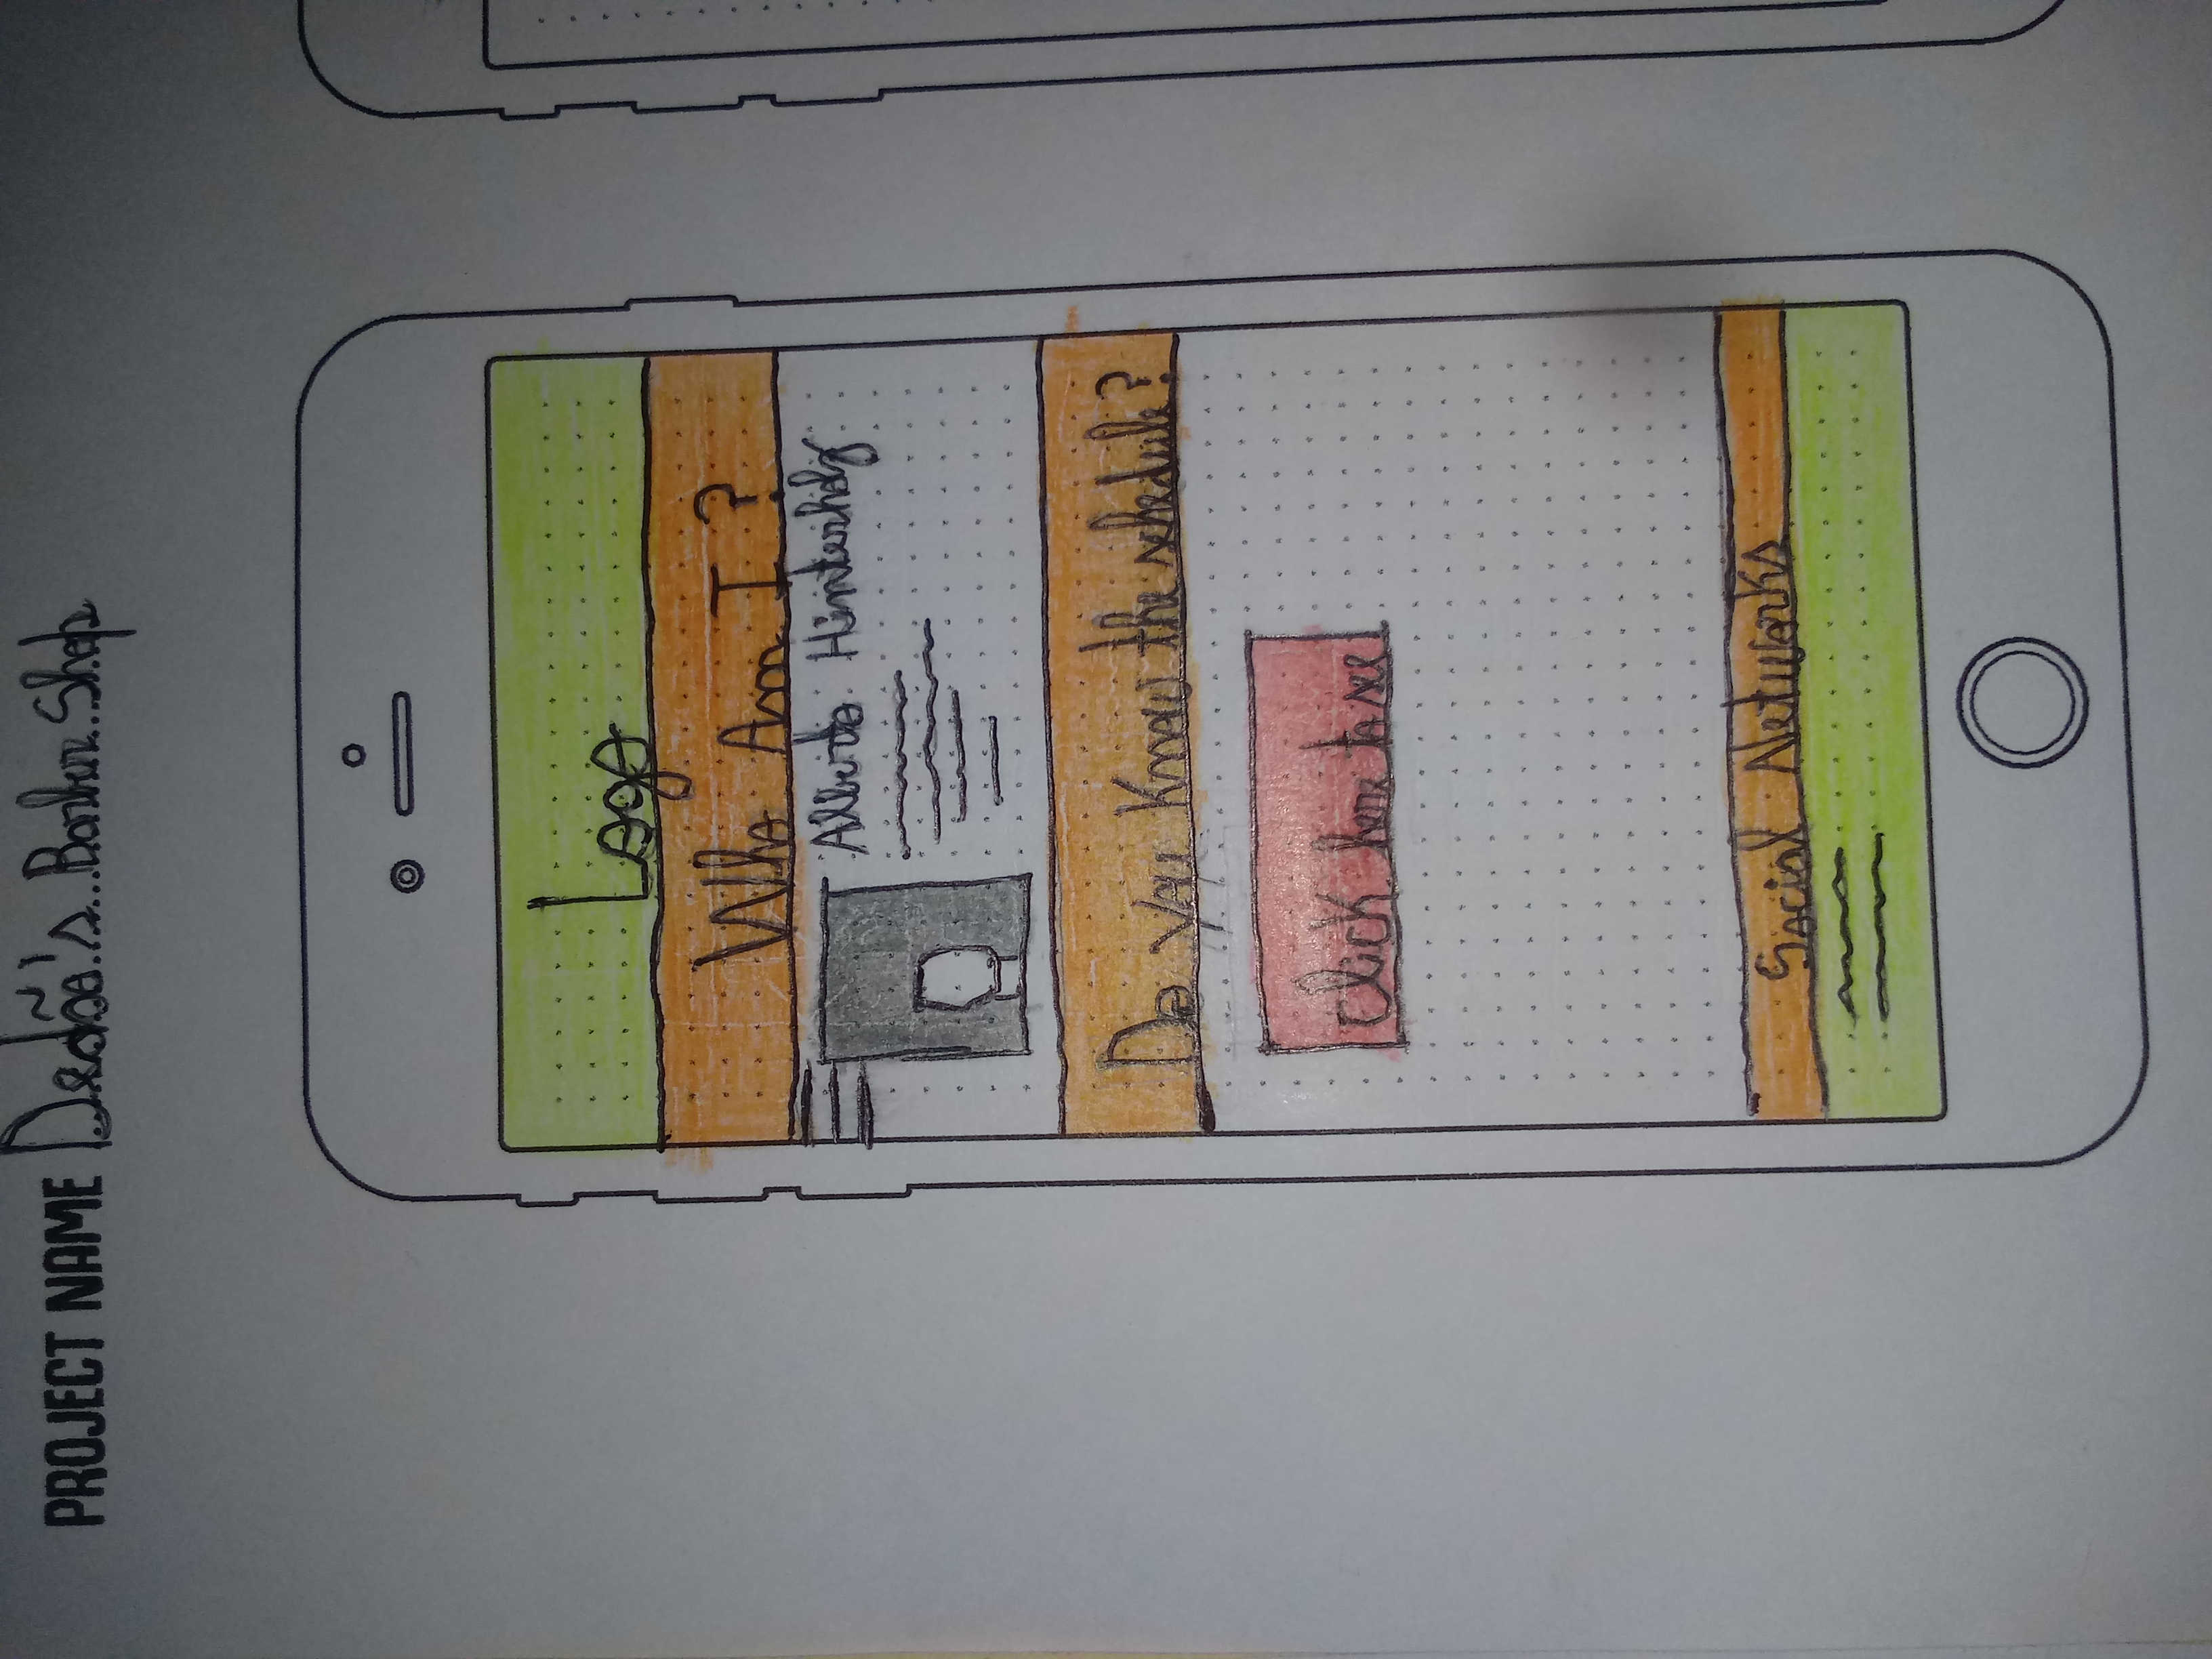 PROJECT NAME Dedão's Barber Shop
Logo
Who Am I?
Alberto Hinterholz
Do you Know the schedule?
click here to see
Social Networks